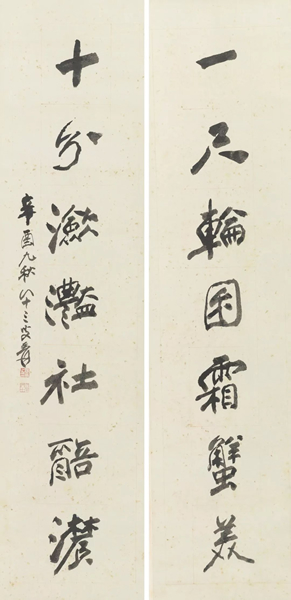 一尺輪囷霜蟹美
十分瀲灩社醅濃
辛酉九秋八十三叟爰